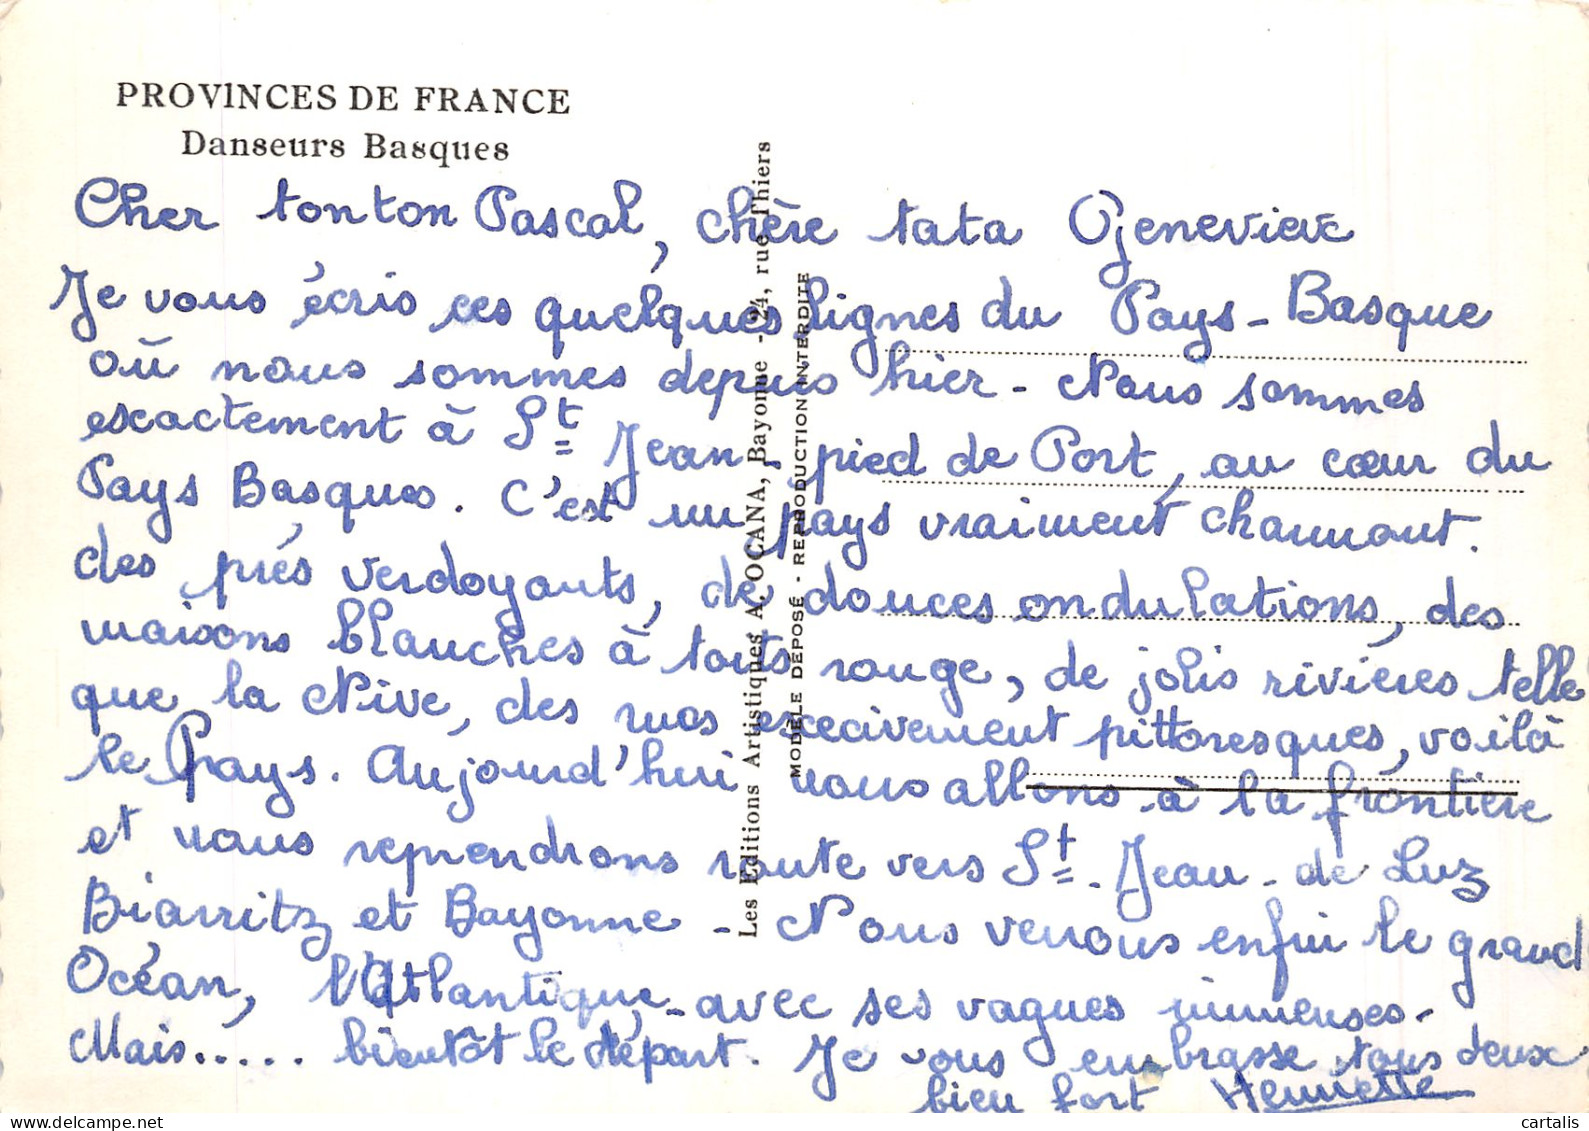 PROVINCES DE FRANCE
Danseurs Basques
Cher tonton Pascal, chère tata Geneviève
Je vous écris ces quelques lignes du Pays-Basque
où nous sommes depuis hier - Nous sommes
exactement à St Jean-pied de Port, au cœur du
Pays Basques. C'est un pays vraiment charmant.
des prés verdoyants, de douces ondulations, des
maisons blanches à toits rouge, de jolis rivières telle
que la Nive, des mas excecivement pittoresques, voilà
le Pays. Aujourd'hui nous allons à la frontière
et nous reprendrons route vers St-Jean-de Luz
Biarritz et Bayonne - Nous verrons enfin le grand
Océan, l'Atlantique, avec ses vagues immenses.
Mais..... bientôt le départ. Je vous embrasse tous deux
bien fort Henriette
Les Editions Artistiques A. OCANA, Bayonne - 24, rue Thiers
MODÈLE DÉPOSÉ - REPRODUCTION INTERDITE
cartalis.com